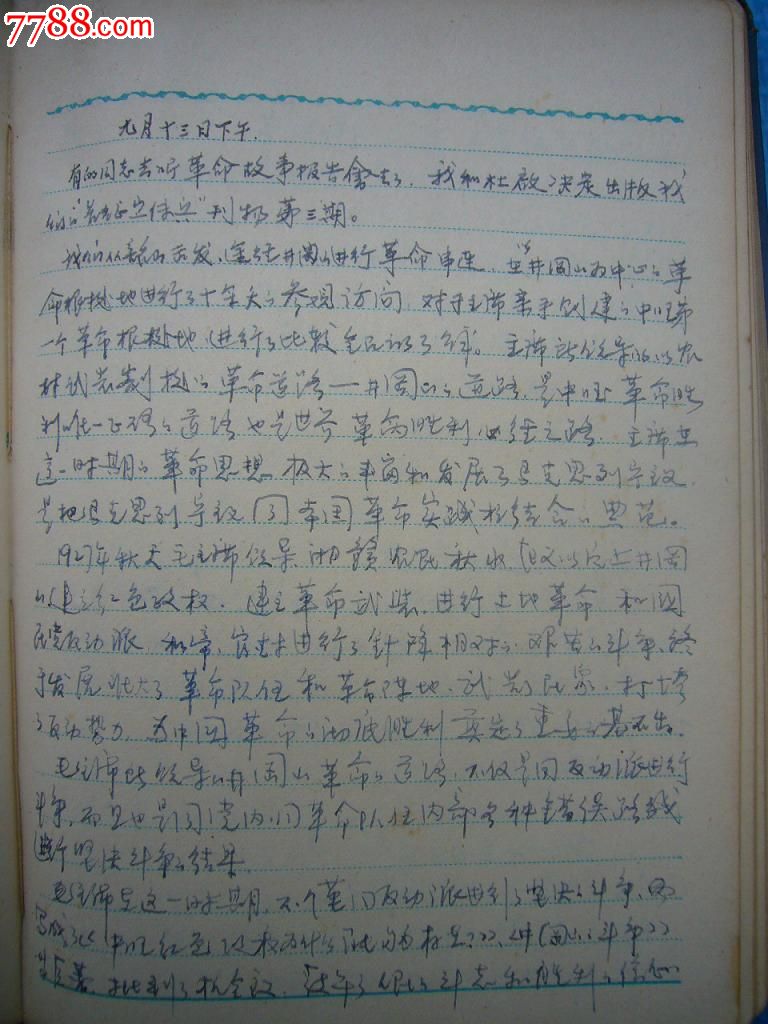 7788.com
九月十三日下午.
有的同志去听革命故事报告會去了,我和杜啟决定出版我
们的"长征宣传兵"刊物第三期。
我们从韶山出发,途经井岡山进行革命串连,在井岡山为中心的革
命根据地进行了十余天的参观访问,对于主席亲手创建的中国第
一个革命根据地进行了比较全面的了解。主席所领导的以农
村武装割据的革命道路一井岡山的道路,是中国革命胜
利唯一正确的道路也是世界革命胜利必经之路.主席在
这一时期的革命思想,极大的丰富和发展了马克思列宁主义,
是把马克思列宁主义同本国革命实践相结合的典范。
1927年秋天毛主席领导湘贛农民秋收起义以后上井岡
山建立红色政权.建立革命武装,进行土地革命和国
民党反动派,和帝、官、封进行了针锋相对的,艰苦的斗争,终
于发展壮大了革命队伍和革命阵地,武装了民众,打垮
了反动势力,为中国革命的彻底胜利奠定了重要的基石出.
毛主席所领导的井岡山革命的道路,不仅是同反动派进行
斗争,而且也是同党内、同革命队伍内部各种错误路线
进行坚决斗争的结果.
毛主席在这一时期,不仅同反动派进行了坚决的斗争,
写成了《中国红色政权为什么能够存在??》《井岡山的斗争》》
等著,批判了机会主义,